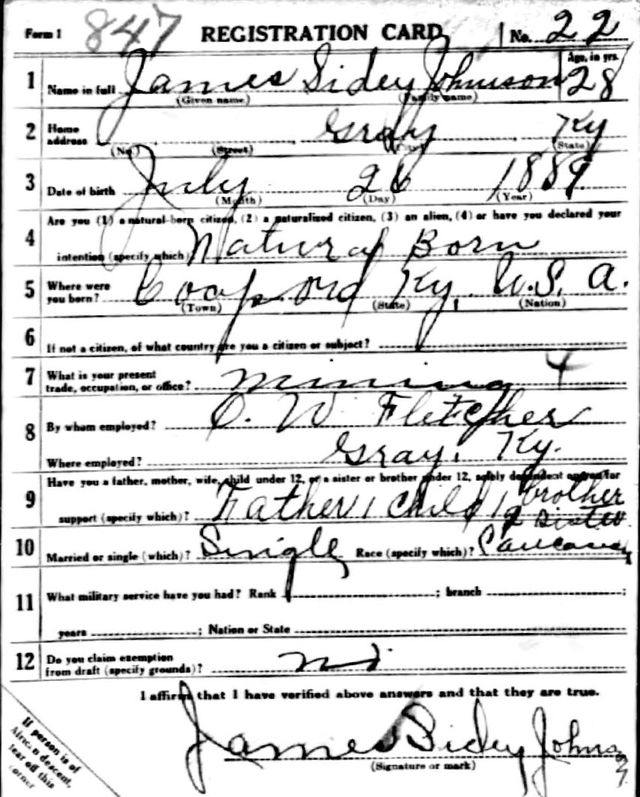 Form 1 847 REGISTRATION CARD No. 22
1 Name in full James Sidey Johnson Age, in yrs. 28
(Given name) (Family name)
2 Home address Gray Ky
(No.) (Street) (City) (State)
3 Date of birth July 26 1889
(Month) (Day) (Year)
4 Are you (1) a natural-born citizen, (2) a naturalized citizen, (3) an alien, (4) or have you declared your
intention (specify which)? Natural Born
5 Where were you born? Ky, U.S.A.
(Town) (State) (Nation)
6 If not a citizen, of what country are you a citizen or subject?
7 What is your present trade, occupation, or office? mining 4
8 By whom employed? C. W Fletcher
Where employed? Gray, Ky.
9 Have you a father, mother, wife, child under 12, or a sister or brother under 12, solely dependent on you for
support (specify which)? Father, child, brother & sister
10 Married or single (which)? Single Race (specify which)? Caucasian
11 What military service have you had? Rank ; branch ;
years ; Nation or State
12 Do you claim exemption from draft (specify grounds)?
I affirm that I have verified above answers and that they are true.
James Sidey Johnson
(Signature or mark)
If person is of
African descent,
tear off this
corner